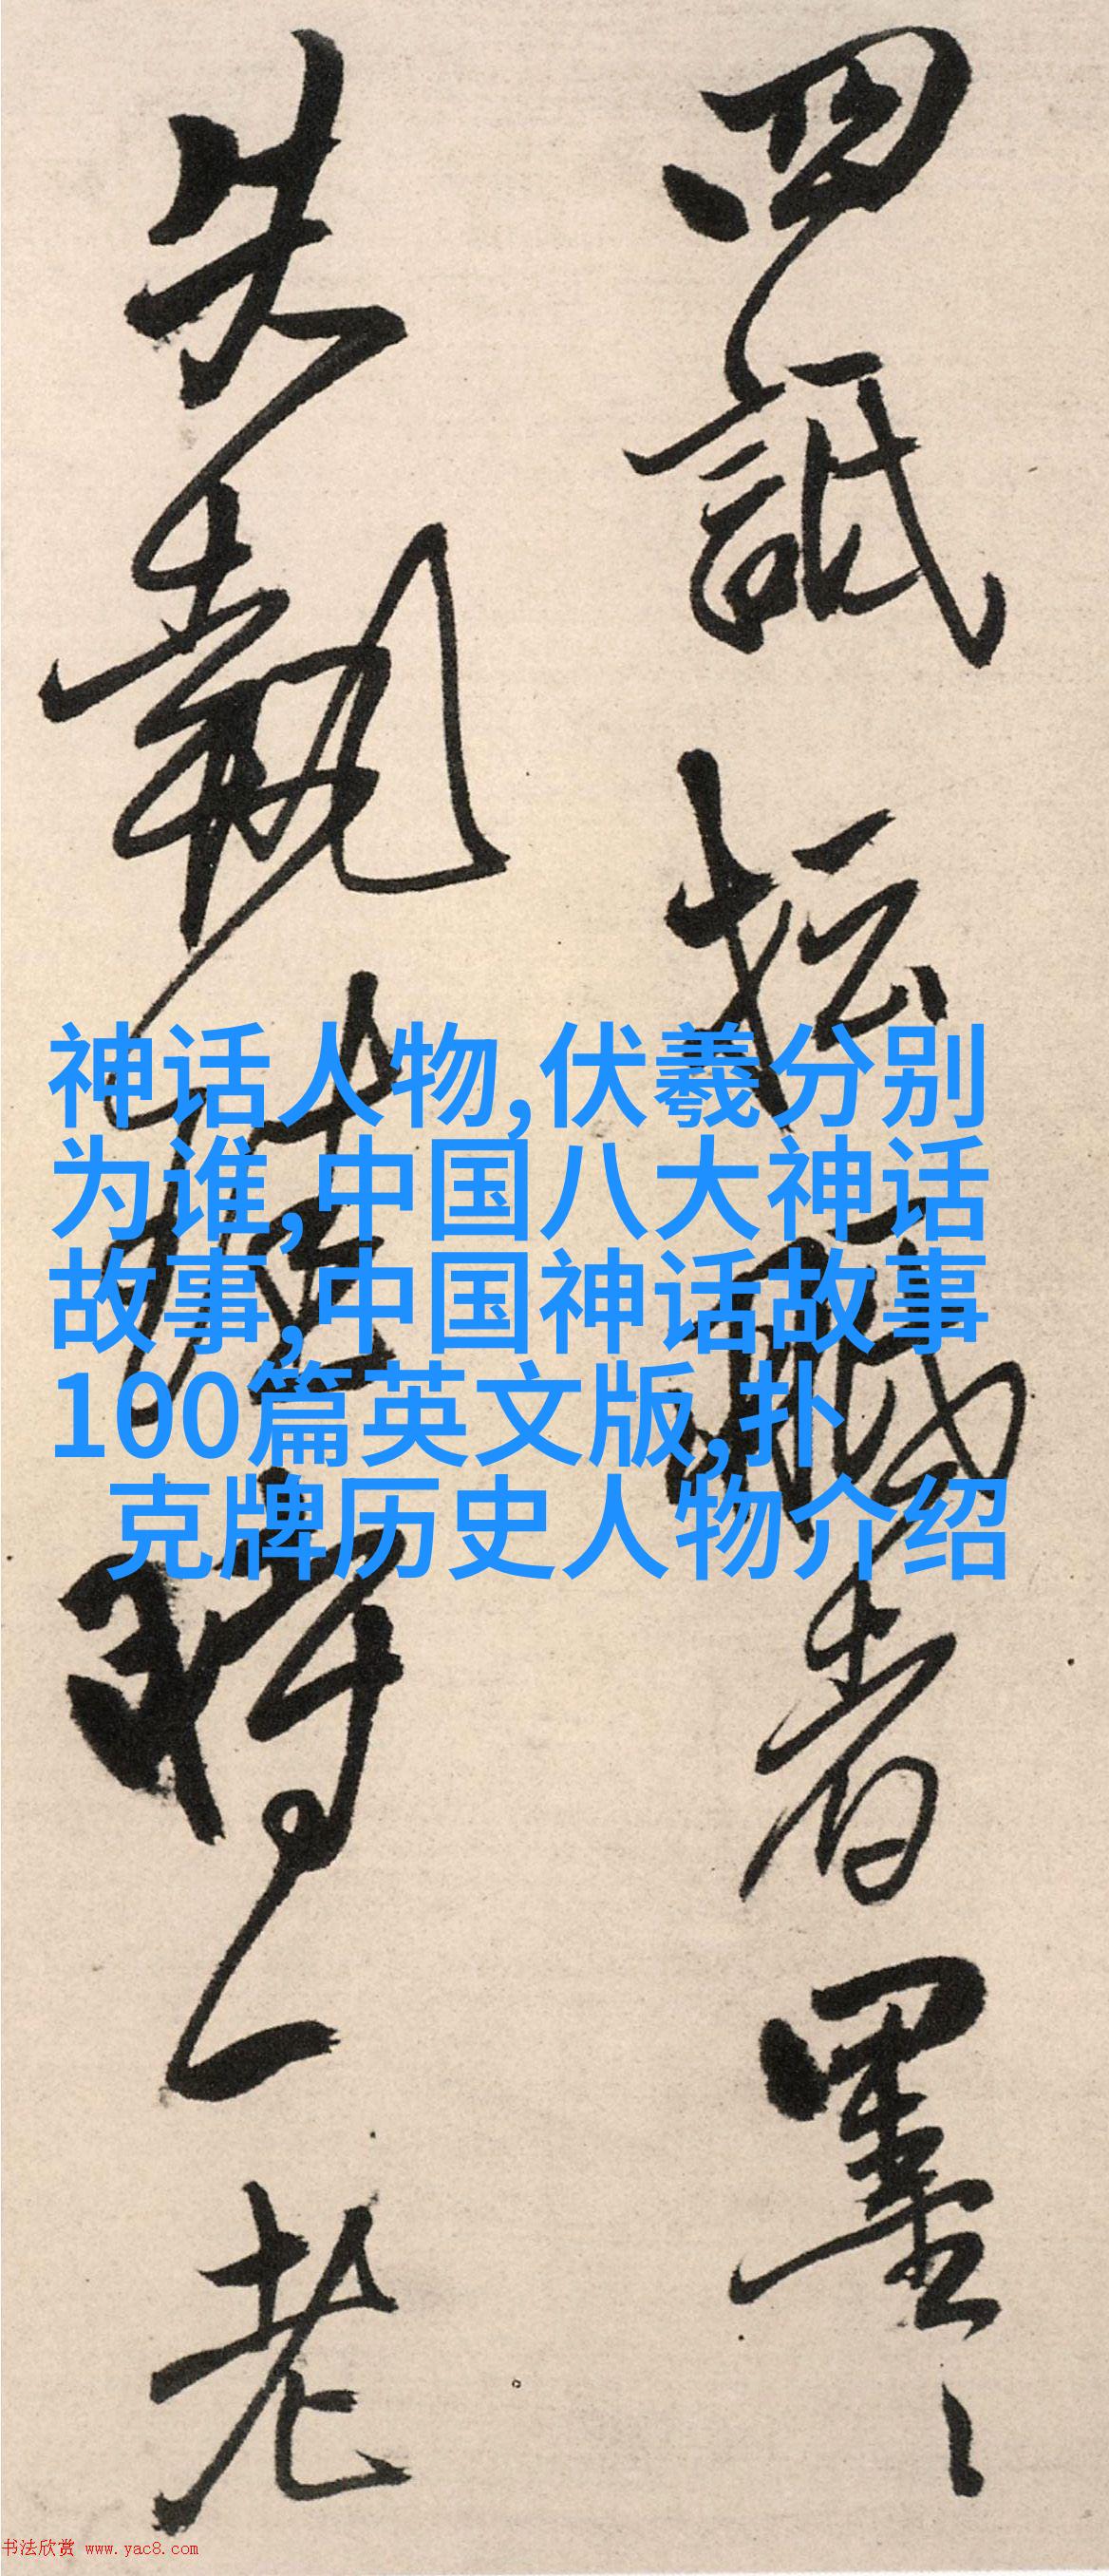 四詆坛職者墨〻
失執
時一
老
神话人物,伏羲分别
为谁,中国八大神话
故事,中国神话故事
100篇英文版,扑
克牌历史人物介绍
书法欣赏 www.yac8.com